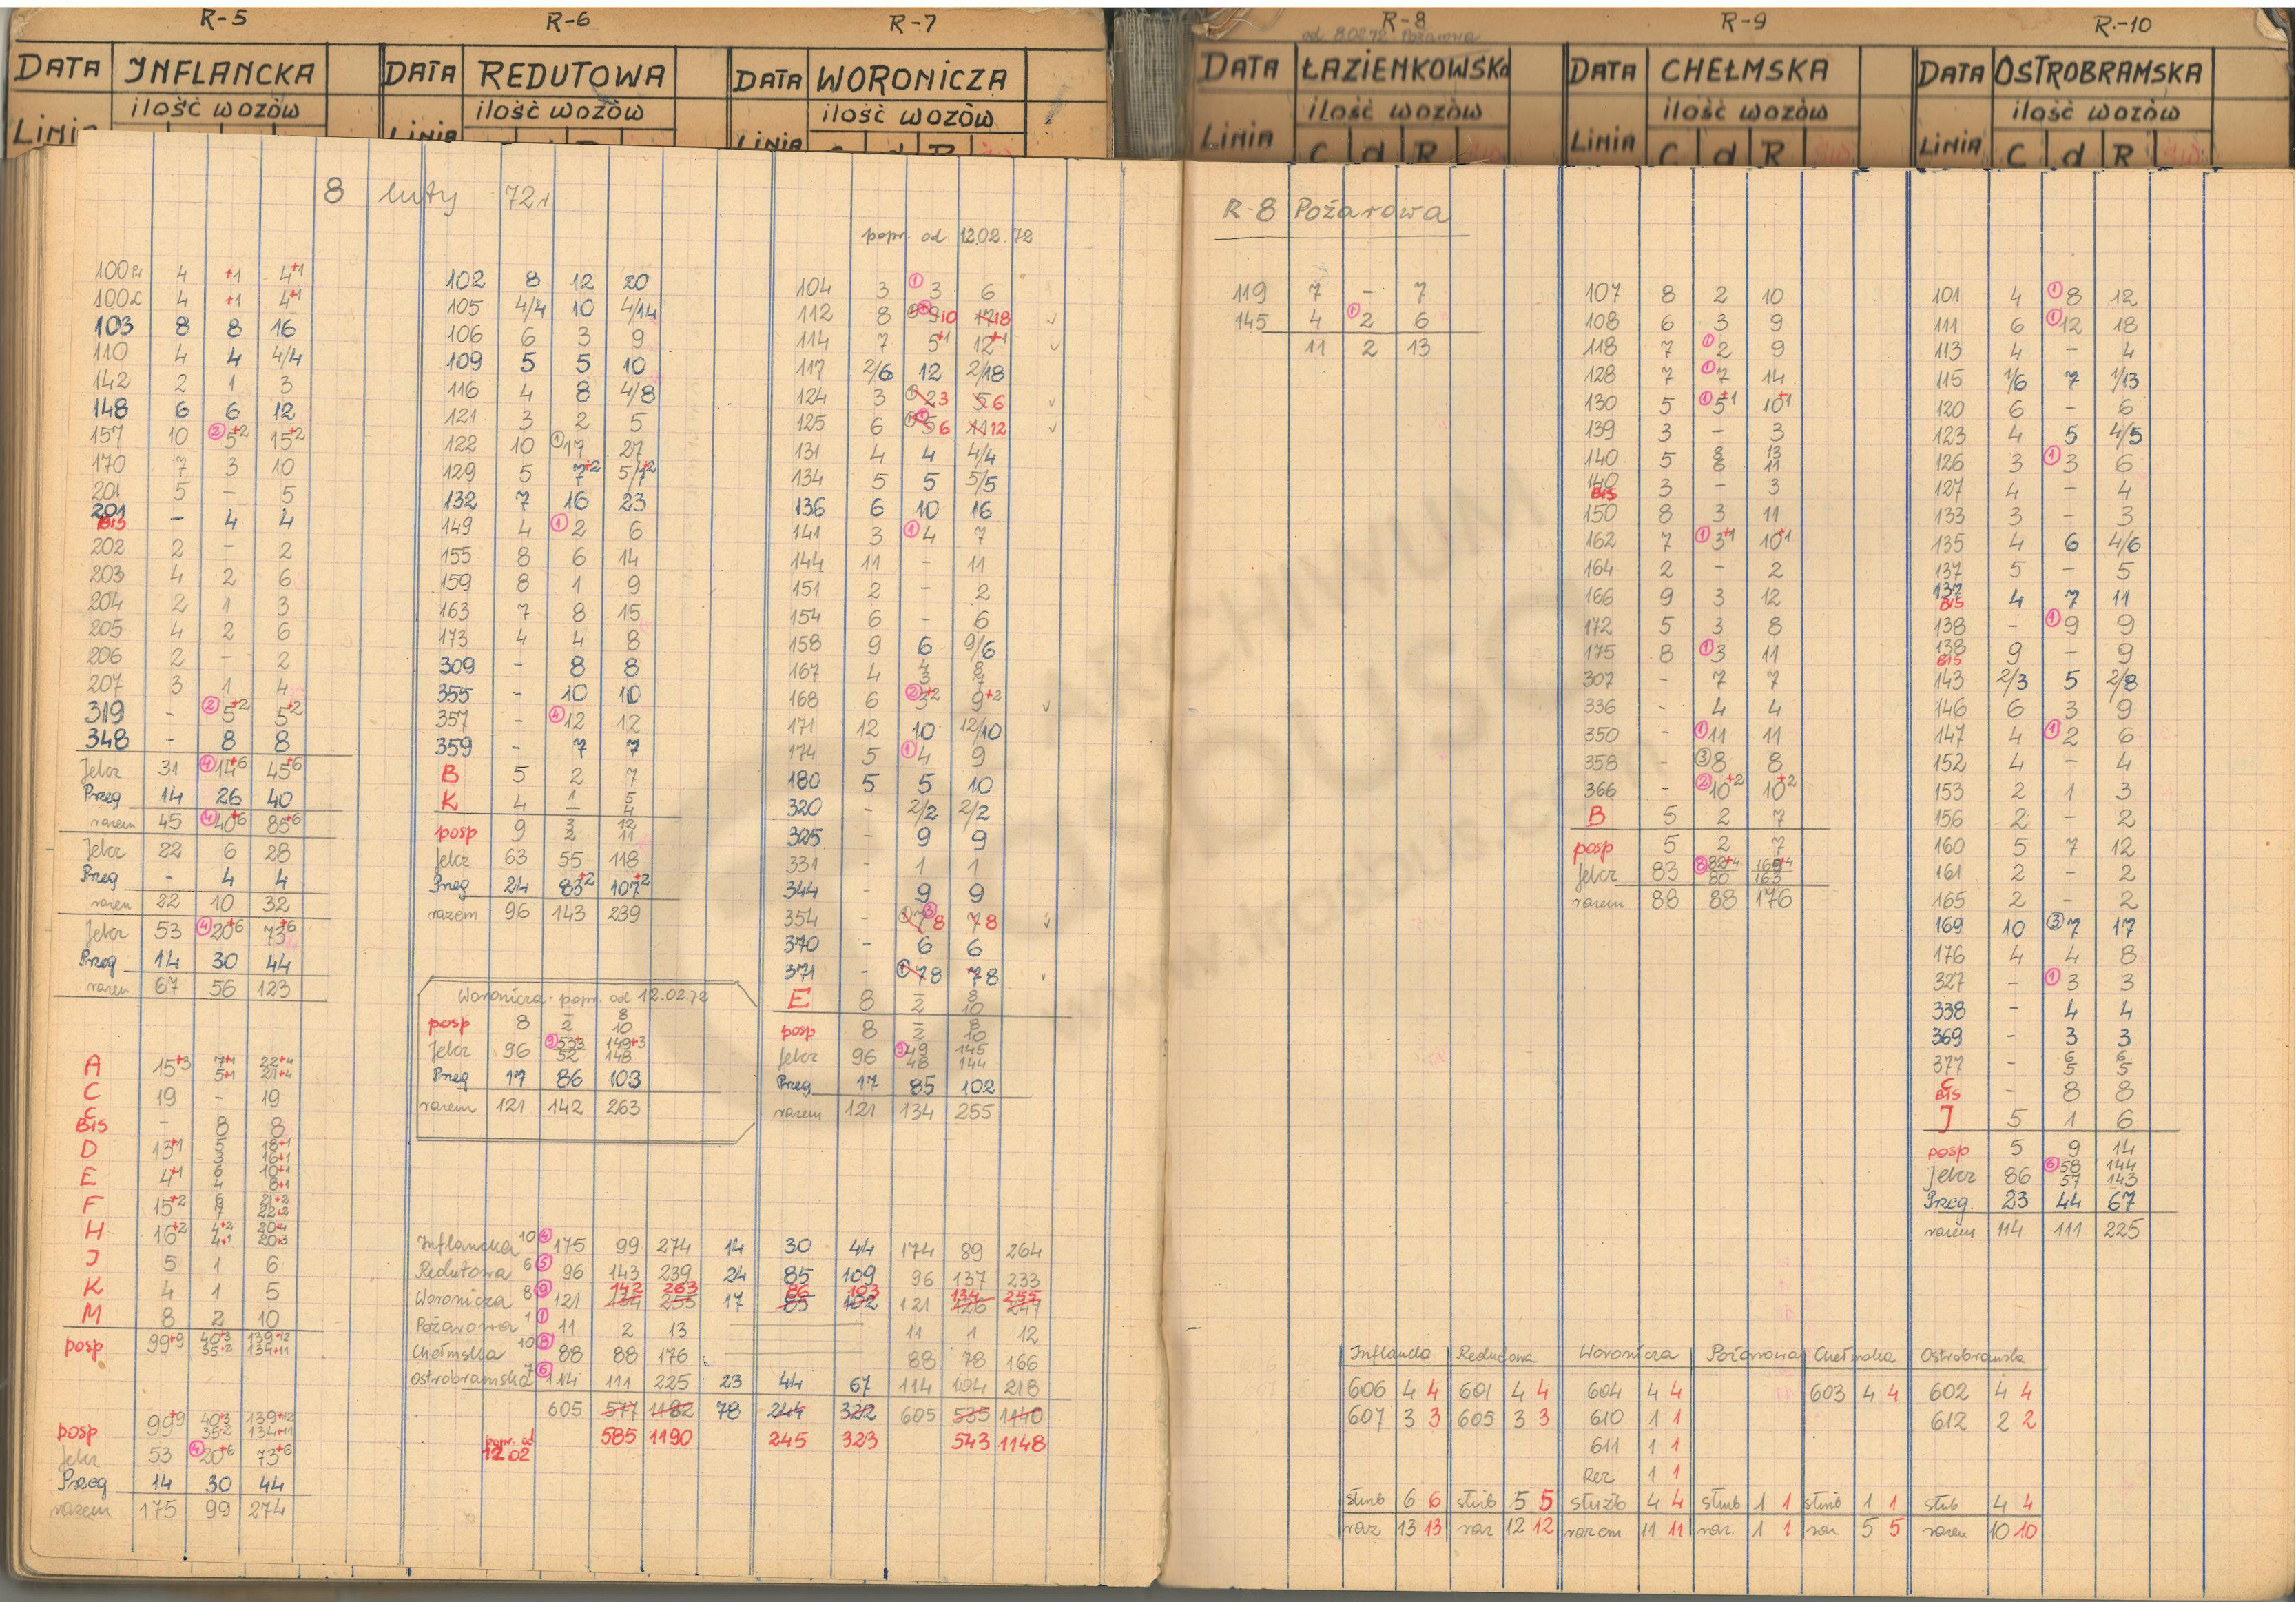 R-5
DATA INFLANCKA
ilość wozów
Linia
R-6
DATA REDUTOWA
ilość wozów
Linia
R-7
DATA WORONICZA
ilość wozów
Linia C d R
R-8
od 8.02.72 Pożarowa
DATA ŁAZIENKOWSKA
ilość wozów
Linia C d R
R-9
DATA CHEŁMSKA
ilość wozów
Linia C d R
R-10
DATA OSTROBRAMSKA
ilość wozów
Linia C d R
8 luty 72r
103 8 8 16
110 4 4 4/4
142 2 1 3
148 6 6 12
157 10 ② 5+2 15+2
170 7 3 10
201 5 - 5
201 BIS - 4 4
202 2 - 2
203 4 2 6
204 2 1 3
205 4 2 6
206 2 - 2
207 3 1 4
319 - ② 5+2 5+2
348 - 8 8
Jelcz 31 ④ 14+6 45+6
Przeg 14 26 40
razem 45 ④ 40+6 85+6
Jelcz 22 6 28
Przeg - 4 4
razem 22 10 32
Jelcz 53 ④ 20+6 73+6
Przeg 14 30 44
razem 67 56 123
A 15+3 7+1 22+4
5+1 21+4
C 19 - 19
C BIS - 8 8
D 13+1 5 18+1
3 16+1
E 4+1 6 10+1
4 8+1
F 15+2 6 21+2
7 22+2
H 16+2 4+2 20+4
4+1 20+3
J 5 1 6
K 4 1 5
M 8 2 10
posp 99+9 40+3 139+12
35+2 134+11
posp 99+9 40+3 139+12
35+2 134+11
Jelcz 53 ④ 20+6 73+6
Przeg 14 30 44
razem 175 99 274
102 8 12 20
105 4/4 10 4/14
106 6 3 9
109 5 5 10
116 4 8 4/8
121 3 2 5
122 10 ① 17 27
129 5 7+2 5/7+2
132 7 16 23
149 4 ① 2 6
155 8 6 14
159 8 1 9
163 7 8 15
173 4 4 8
309 - 8 8
355 - 10 10
357 - ④ 12 12
359 - 7 7
B 5 2 7
K 4 1 5
- 4
posp 9 3 12
2 11
Jelcz 63 55 118
Przeg 24 83+2 107+2
razem 96 143 239
Woronicza - popr. od 12.02.72
posp 8 - 8
2 10
Jelcz 96 ⑨ 53+3 149+3
52 148
Przeg 17 86 103
razem 121 142 263
popr. od 12.02.72
104 3 ① 3 6
112 8 9 10 17 18
114 7 5+1 12+1
117 2/6 12 2/18
124 3 2 3 5 6
125 6 5 6 11 12
131 4 4 4/4
134 5 5 5/5
136 6 10 16
141 3 ① 4 7
144 11 - 11
151 2 - 2
154 6 - 6
158 9 6 9/6
167 4 4 8
3 7
168 6 ② 3+2 9+2
171 12 10 12/10
174 5 ① 4 9
180 5 5 10
320 - 2/2 2/2
325 - 9 9
331 - 1 1
344 - 9 9
354 - 7 8 7 8
370 - 6 6
371 - ① 7 8 7 8
E 8 - 8
2 10
posp 8 - 8
2 10
Jelcz 96 ⑨ 49 145
48 144
Przeg 17 85 102
razem 121 134 255
Inflancka 10 ④ 175 99 274 14 30 44 174 89 264
Redutowa 6 ⑤ 96 143 239 24 85 109 96 137 233
142 263 86 103 134 255
Woronicza 8 ⑨ 121 134 255 17 85 102 121 126 247
Pożarowa 1 ① 11 2 13 11 1 12
Chełmska 10 ⑧ 88 88 176 88 78 166
Ostrobramska 7 ⑥ 114 111 225 23 44 67 114 104 218
605 577 1182 78 244 322 605 535 1140
popr. od 12.02 585 1190 245 323 543 1148
R-8 Pożarowa
119 7 - 7
145 4 ① 2 6
11 2 13
107 8 2 10
108 6 3 9
118 7 ① 2 9
128 7 ① 7 14
130 5 ① 5+1 10+1
139 3 - 3
140 5 8 13
6 11
140 BIS 3 - 3
150 8 3 11
162 7 ① 3+1 10+1
164 2 - 2
166 9 3 12
172 5 3 8
175 8 ① 3 11
307 - 7 7
336 - 4 4
350 - ① 11 11
358 - ③ 8 8
366 - ② 10+2 10+2
B 5 2 7
posp 5 2 7
Jelcz 83 ⑧ 82+4 165+4
80 163
razem 88 88 176
101 4 ① 8 12
111 6 ① 12 18
113 4 - 4
115 1/6 7 1/13
120 6 - 6
123 4 5 4/5
126 3 ① 3 6
127 4 - 4
133 3 - 3
135 4 6 4/6
137 5 - 5
137 BIS 4 7 11
138 - ① 9 9
138 BIS 9 - 9
143 2/3 5 2/8
146 6 3 9
147 4 ① 2 6
152 4 - 4
153 2 1 3
156 2 - 2
160 5 7 12
161 2 - 2
165 2 - 2
169 10 ③ 7 17
176 4 4 8
327 - ① 3 3
338 - 4 4
369 - 3 3
377 - 6 6
5 5
C BIS - 8 8
J 5 1 6
posp 5 9 14
Jelcz 86 ⑥ 58 144
57 143
Przeg. 23 44 67
razem 114 111 225
Inflancka Redutowa Woronicza Pożarowa Chełmska Ostrobramska
606 4 4 601 4 4 604 4 4 603 4 4 602 4 4
607 3 3 605 3 3 610 1 1 612 2 2
611 1 1
Rez 1 1
służb 6 6 służb 5 5 służb 4 4 służb 1 1 służb 1 1 służb 4 4
raz 13 13 raz 12 12 razem 11 11 raz. 1 1 raz 5 5 razem 10 10